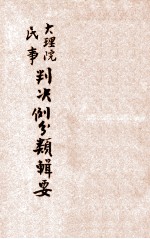 大理院
民事
判决例分類輯要